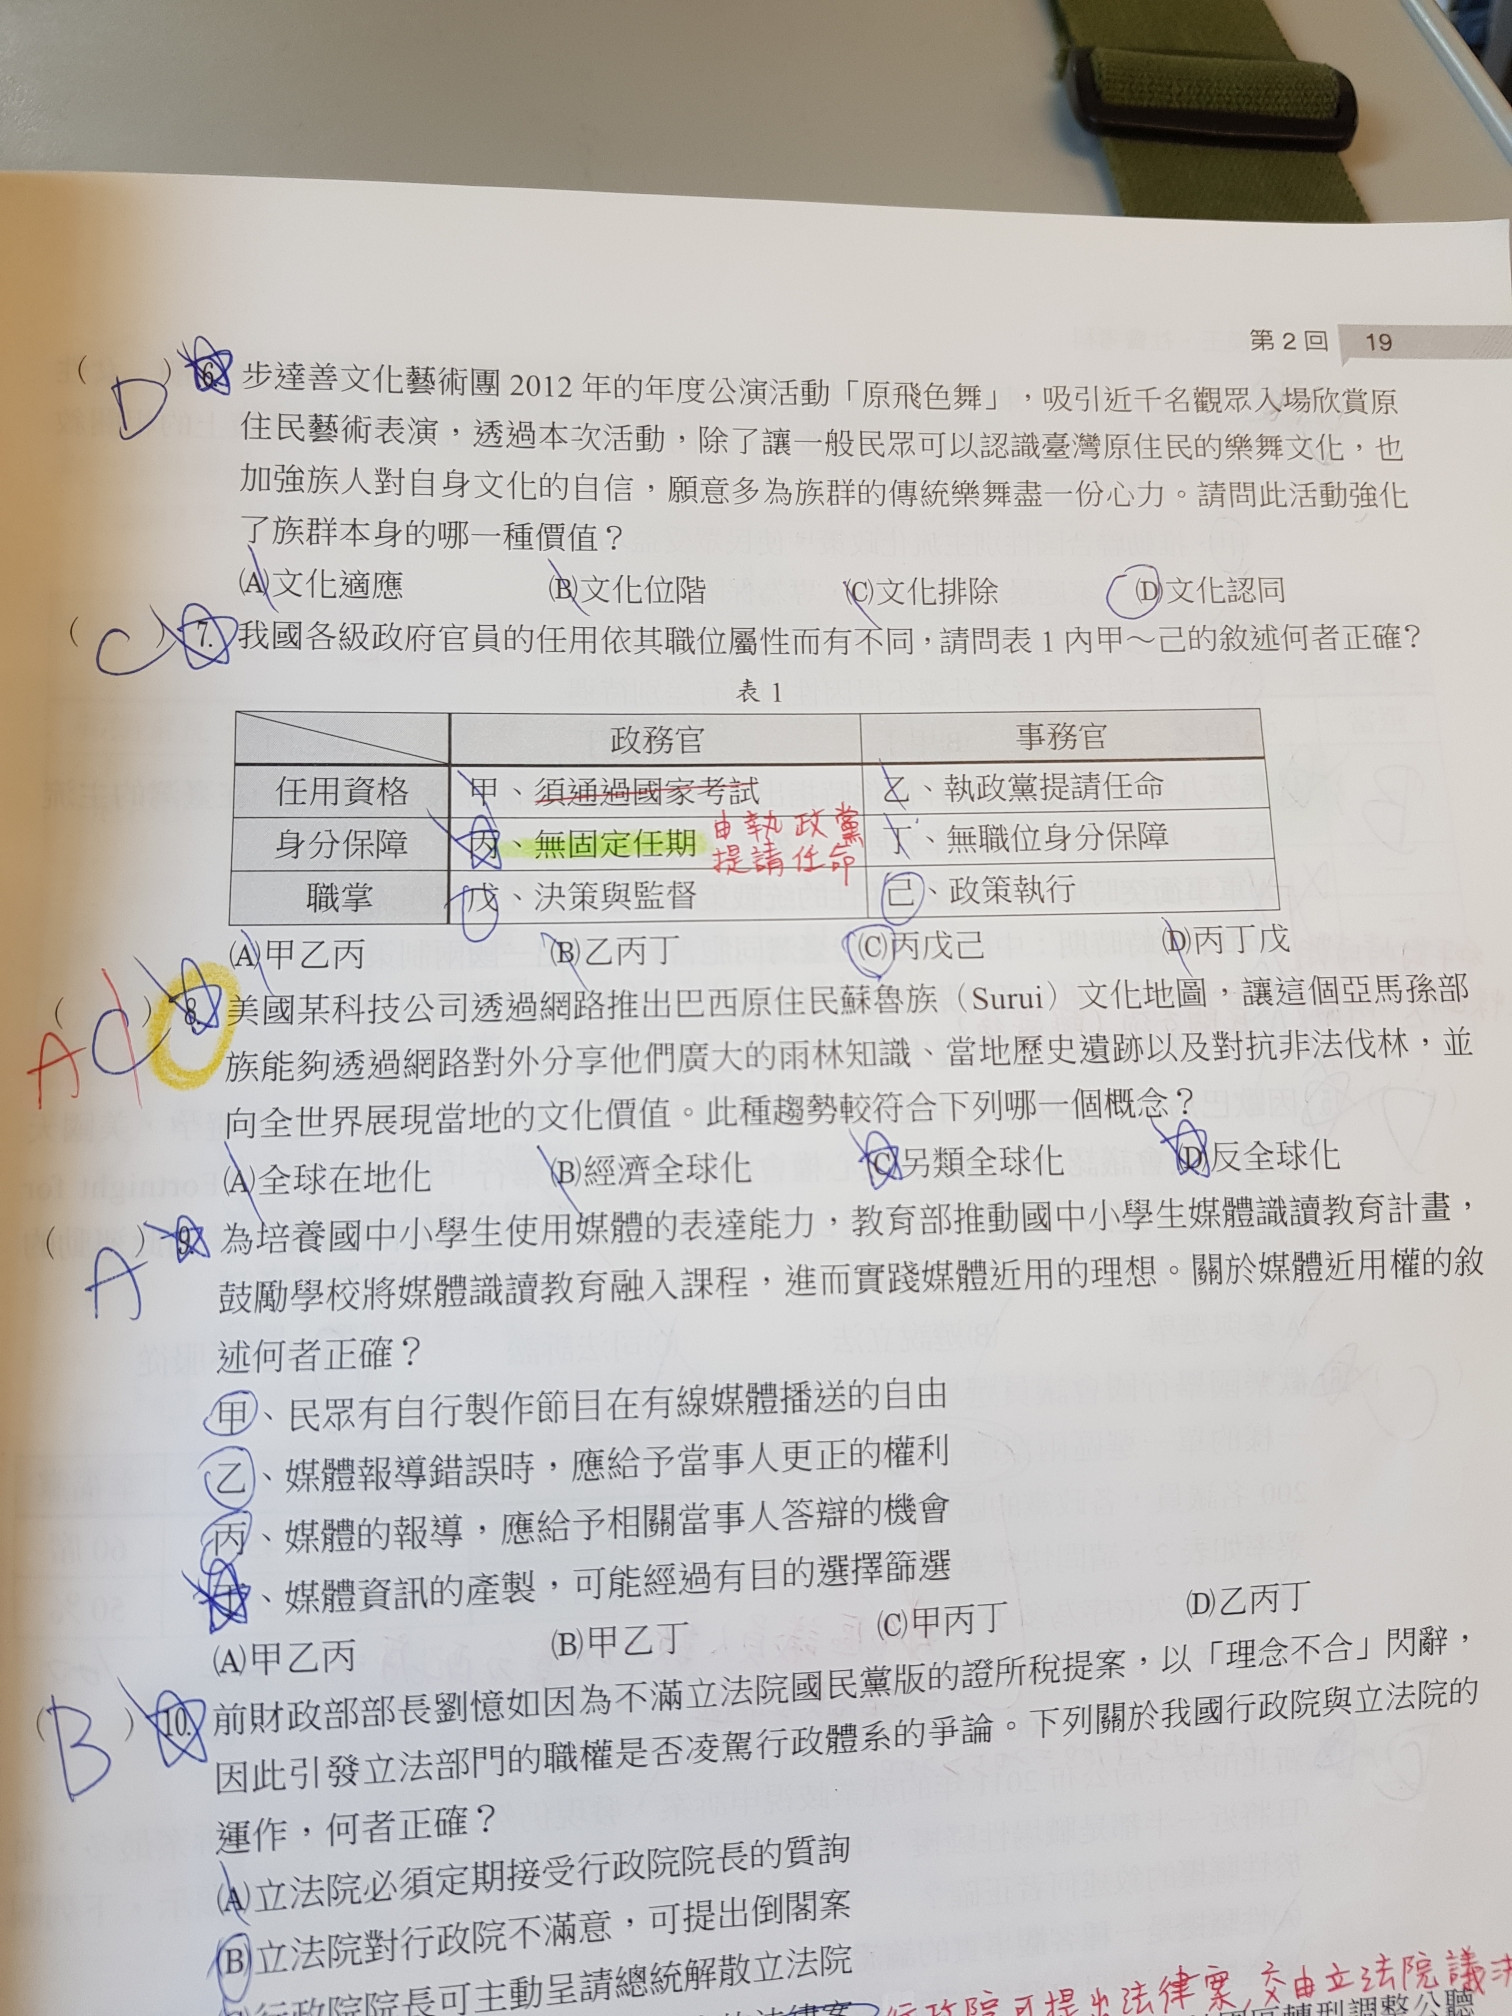 第2回 19
( D ) 6. 步達善文化藝術團 2012 年的年度公演活動「原飛色舞」，吸引近千名觀眾入場欣賞原
住民藝術表演，透過本次活動，除了讓一般民眾可以認識臺灣原住民的樂舞文化，也
加強族人對自身文化的自信，願意多為族群的傳統樂舞盡一份心力。請問此活動強化
了族群本身的哪一種價值？
(A)文化適應 (B)文化位階 (C)文化排除 (D)文化認同
( C ) 7. 我國各級政府官員的任用依其職位屬性而有不同，請問表 1 內甲～己的敘述何者正確？
表 1
政務官 事務官
任用資格 甲、須通過國家考試 乙、執政黨提請任命
身分保障 丙、無固定任期 由執政黨 丁、無職位身分保障
提請任命
職掌 戊、決策與監督 己、政策執行
(A)甲乙丙 (B)乙丙丁 (C)丙戊己 (D)丙丁戊
A ( C ) 8. 美國某科技公司透過網路推出巴西原住民蘇魯族（Surui）文化地圖，讓這個亞馬孫部
族能夠透過網路對外分享他們廣大的雨林知識、當地歷史遺跡以及對抗非法伐林，並
向全世界展現當地的文化價值。此種趨勢較符合下列哪一個概念？
(A)全球在地化 (B)經濟全球化 (C)另類全球化 (D)反全球化
( A ) 9. 為培養國中小學生使用媒體的表達能力，教育部推動國中小學生媒體識讀教育計畫，
鼓勵學校將媒體識讀教育融入課程，進而實踐媒體近用的理想。關於媒體近用權的敘
述何者正確？
甲、民眾有自行製作節目在有線媒體播送的自由
乙、媒體報導錯誤時，應給予當事人更正的權利
丙、媒體的報導，應給予相關當事人答辯的機會
丁、媒體資訊的產製，可能經過有目的選擇篩選
(A)甲乙丙 (B)甲乙丁 (C)甲丙丁 (D)乙丙丁
( B ) 10. 前財政部部長劉憶如因為不滿立法院國民黨版的證所稅提案，以「理念不合」閃辭，
因此引發立法部門的職權是否凌駕行政體系的爭論。下列關於我國行政院與立法院的
運作，何者正確？
(A)立法院必須定期接受行政院院長的質詢
(B)立法院對行政院不滿意，可提出倒閣案
行政院院長可主動呈請總統解散立法院
行政院可提出法律案，交由立法院議決